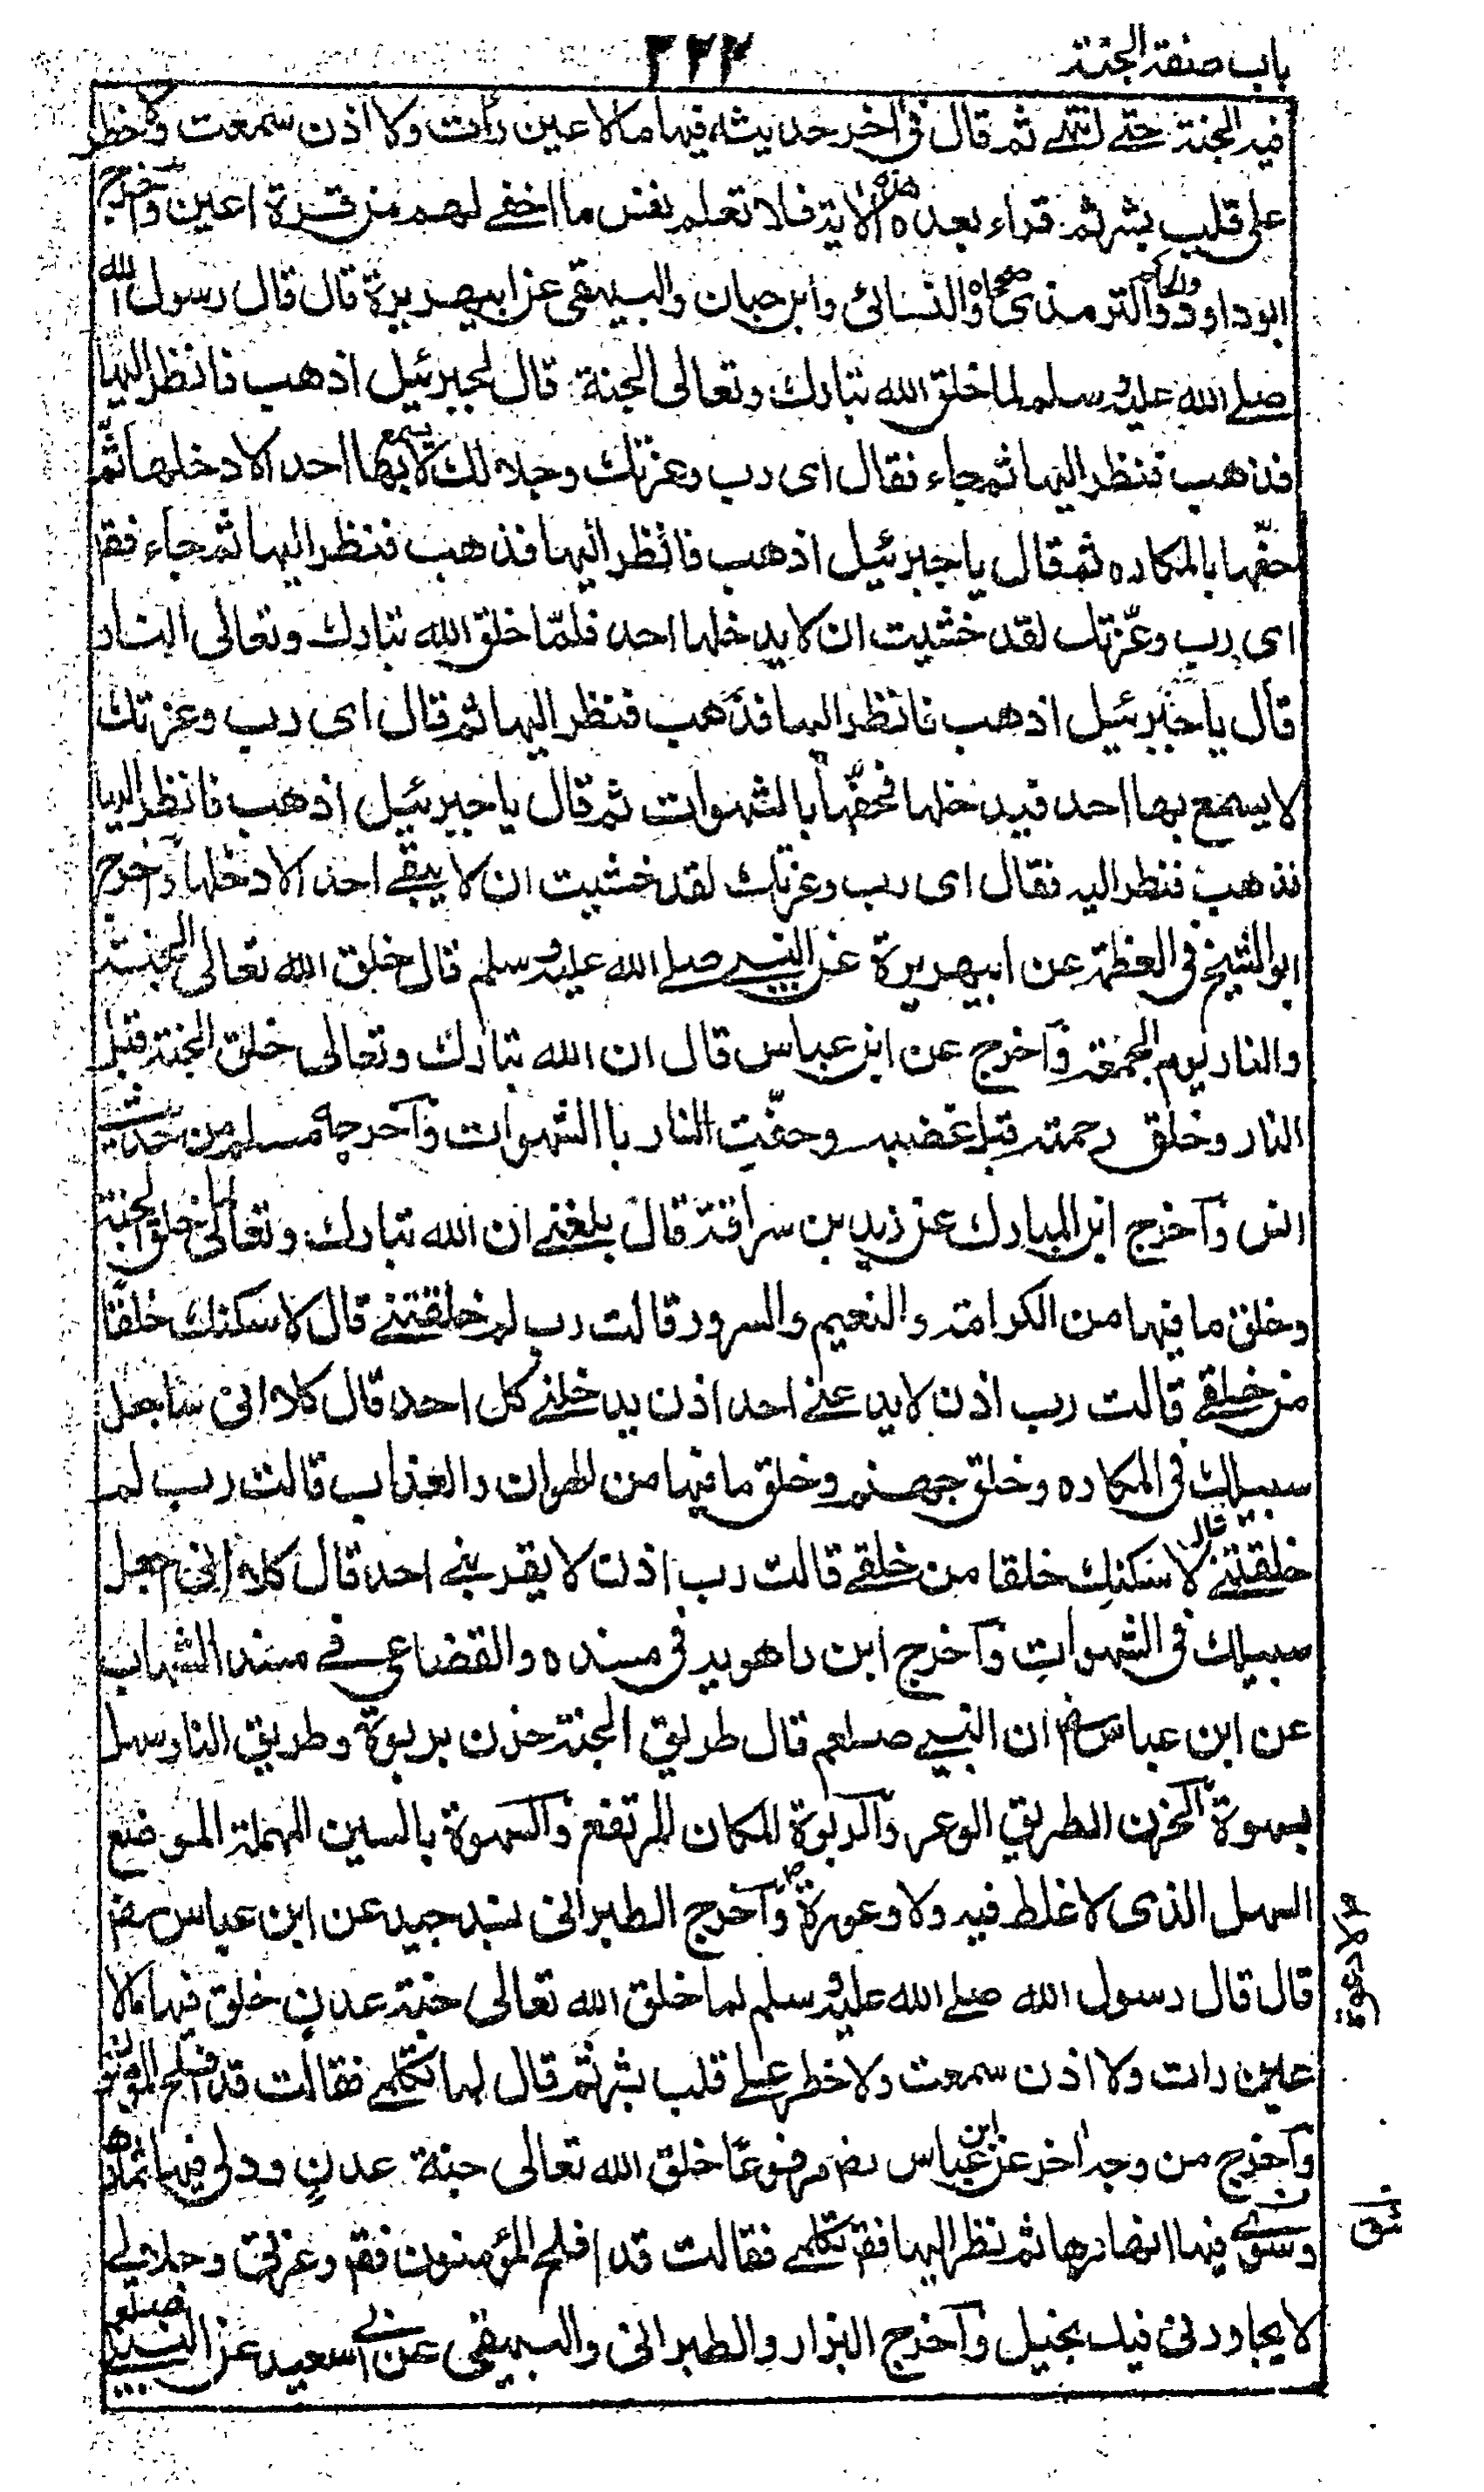 باب صفة الجنة
٣٢٢
فيه الجنة حتى انتهى ثم قال في آخر حديثه فيها ما لا عين رأت ولا اذن سمعت ولا خطر
على قلب بشر ثم قراء بعده هذه الاية فلا تعلم نفس ما اخفي لهم من قرة اعين وآخرج
ابو داود والترمذي والحاكم صححاه والنسائي وابن حبان والبيهقي عن ابيهريرة قال قال رسول الله
صلى الله عليه وسلم لما خلق الله تبارك وتعالى الجنة قال لجبرئيل اذهب فانظر اليها
فذهب فنظر اليها ثم جاء فقال اى رب وعزتك وجلالك لا يسمع بها احد الا دخلها ثم
حفّها بالمكاره ثم قال يا جبرئيل اذهب فانظر اليها فذهب فنظر اليها ثم جاء فقر
اى رب وعزّتك لقد خشيت ان لا يدخلها احد فلمّا خلق الله تبارك وتعالى النار
قال يا جبرئيل اذهب فانظر اليها فذهب فنظر اليها ثم قال اى رب وعزتك
لا يسمع بها احد فيدخلها فحفّها بالشهوات ثم قال يا جبرئيل اذهب فانظر اليها
فذهب فنظر اليه فقال اى رب وعزتك لقد خشيت ان لا يبقى احد الا دخلها وآخرج
ابو الشيخ في العظمة عن ابيهريرة عن النبي صلى الله عليه وسلم قال خلق الله تعالى الجنة
والنار يوم الجمعة وآخرج عن ابن عباس قال ان الله تبارك وتعالى خلق الجنة قبل
النار وخلق رحمته قبل غضبه وحفّت النار باالشهوات وآخرجه مسلم من حديث
انس وآخرج ابن المبارك عن زيد بن سراقة قال بلغني ان الله تبارك وتعالى لما خلق الجنة
وخلق ما فيها من الكرامة والنعيم والسرور قالت رب لم خلقتني قال لاسكنك خلقًا
من خلقي قالت رب اذن لا يدعني احد اذن يدخلني كل احد قال كلا اني ساجعل
سبيلك في المكاره وخلق جهنم وخلق ما فيها من الهوان والعذاب قالت رب لم
خلقتني قال لاسكنك خلقا من خلقي قالت رب اذن لا يقربني احد قال كلا اني اجعل
سبيلك في الشهوات وآخرج ابن راهويه في مسنده والقضاعي في مسند الشهاب
عن ابن عباس رض ان النبي صلعم قال طريق الجنة حزن بربوة وطريق النار سهل
بسهوة الحزن الطريق الوعر والربوة المكان المرتفع والسهوة بالسين المهملة الموضع
السهل الذى لا غلط فيه ولا وعورة وآخرج الطبراني بسند جيد عن ابن عباس رض
قال قال رسول الله صلى الله عليه وسلم لما خلق الله تعالى جنة عدن خلق فيها مالا
عين رات ولا اذن سمعت ولا خطر على قلب بشر ثم قال لها تكلمي فقالت قد افلح المؤمنون
وآخرج من وجه آخر عن ابن عباس رض مرفوعًا خلق الله تعالى جنة عدنٍ ودلى فيها ثمارها
وشق فيها انهارها ثم نظر اليها فقر تكلمي فقالت قد افلح المؤمنون فقر وعزتي وجلالي
لا يجاورني فيك بخيل وآخرج البزار والطبراني والبيهقي عن ابي سعيد عن النبي صلعم
ولا وعورة
شق